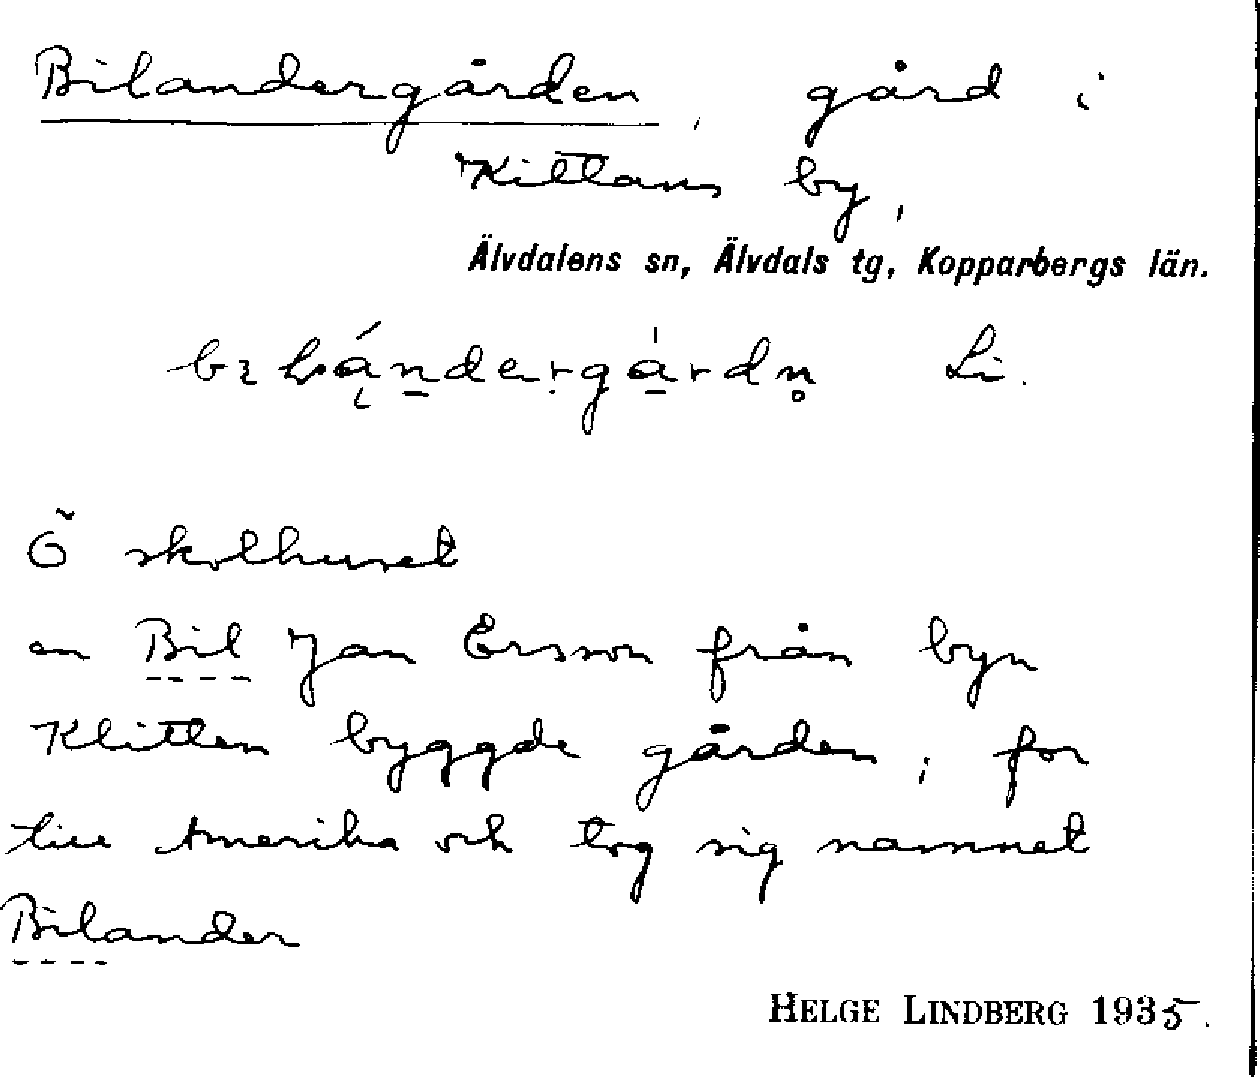 Bilandergården, gård i
Kittans by,
Älvdalens sn, Älvdals tg, Kopparbergs län.
Li.
Ö skolhuset
en Bil Jan Ersson från byn
Klitten byggde gården; for
till Amerika och tog sig namnet
Bilander
HELGE LINDBERG 1935.